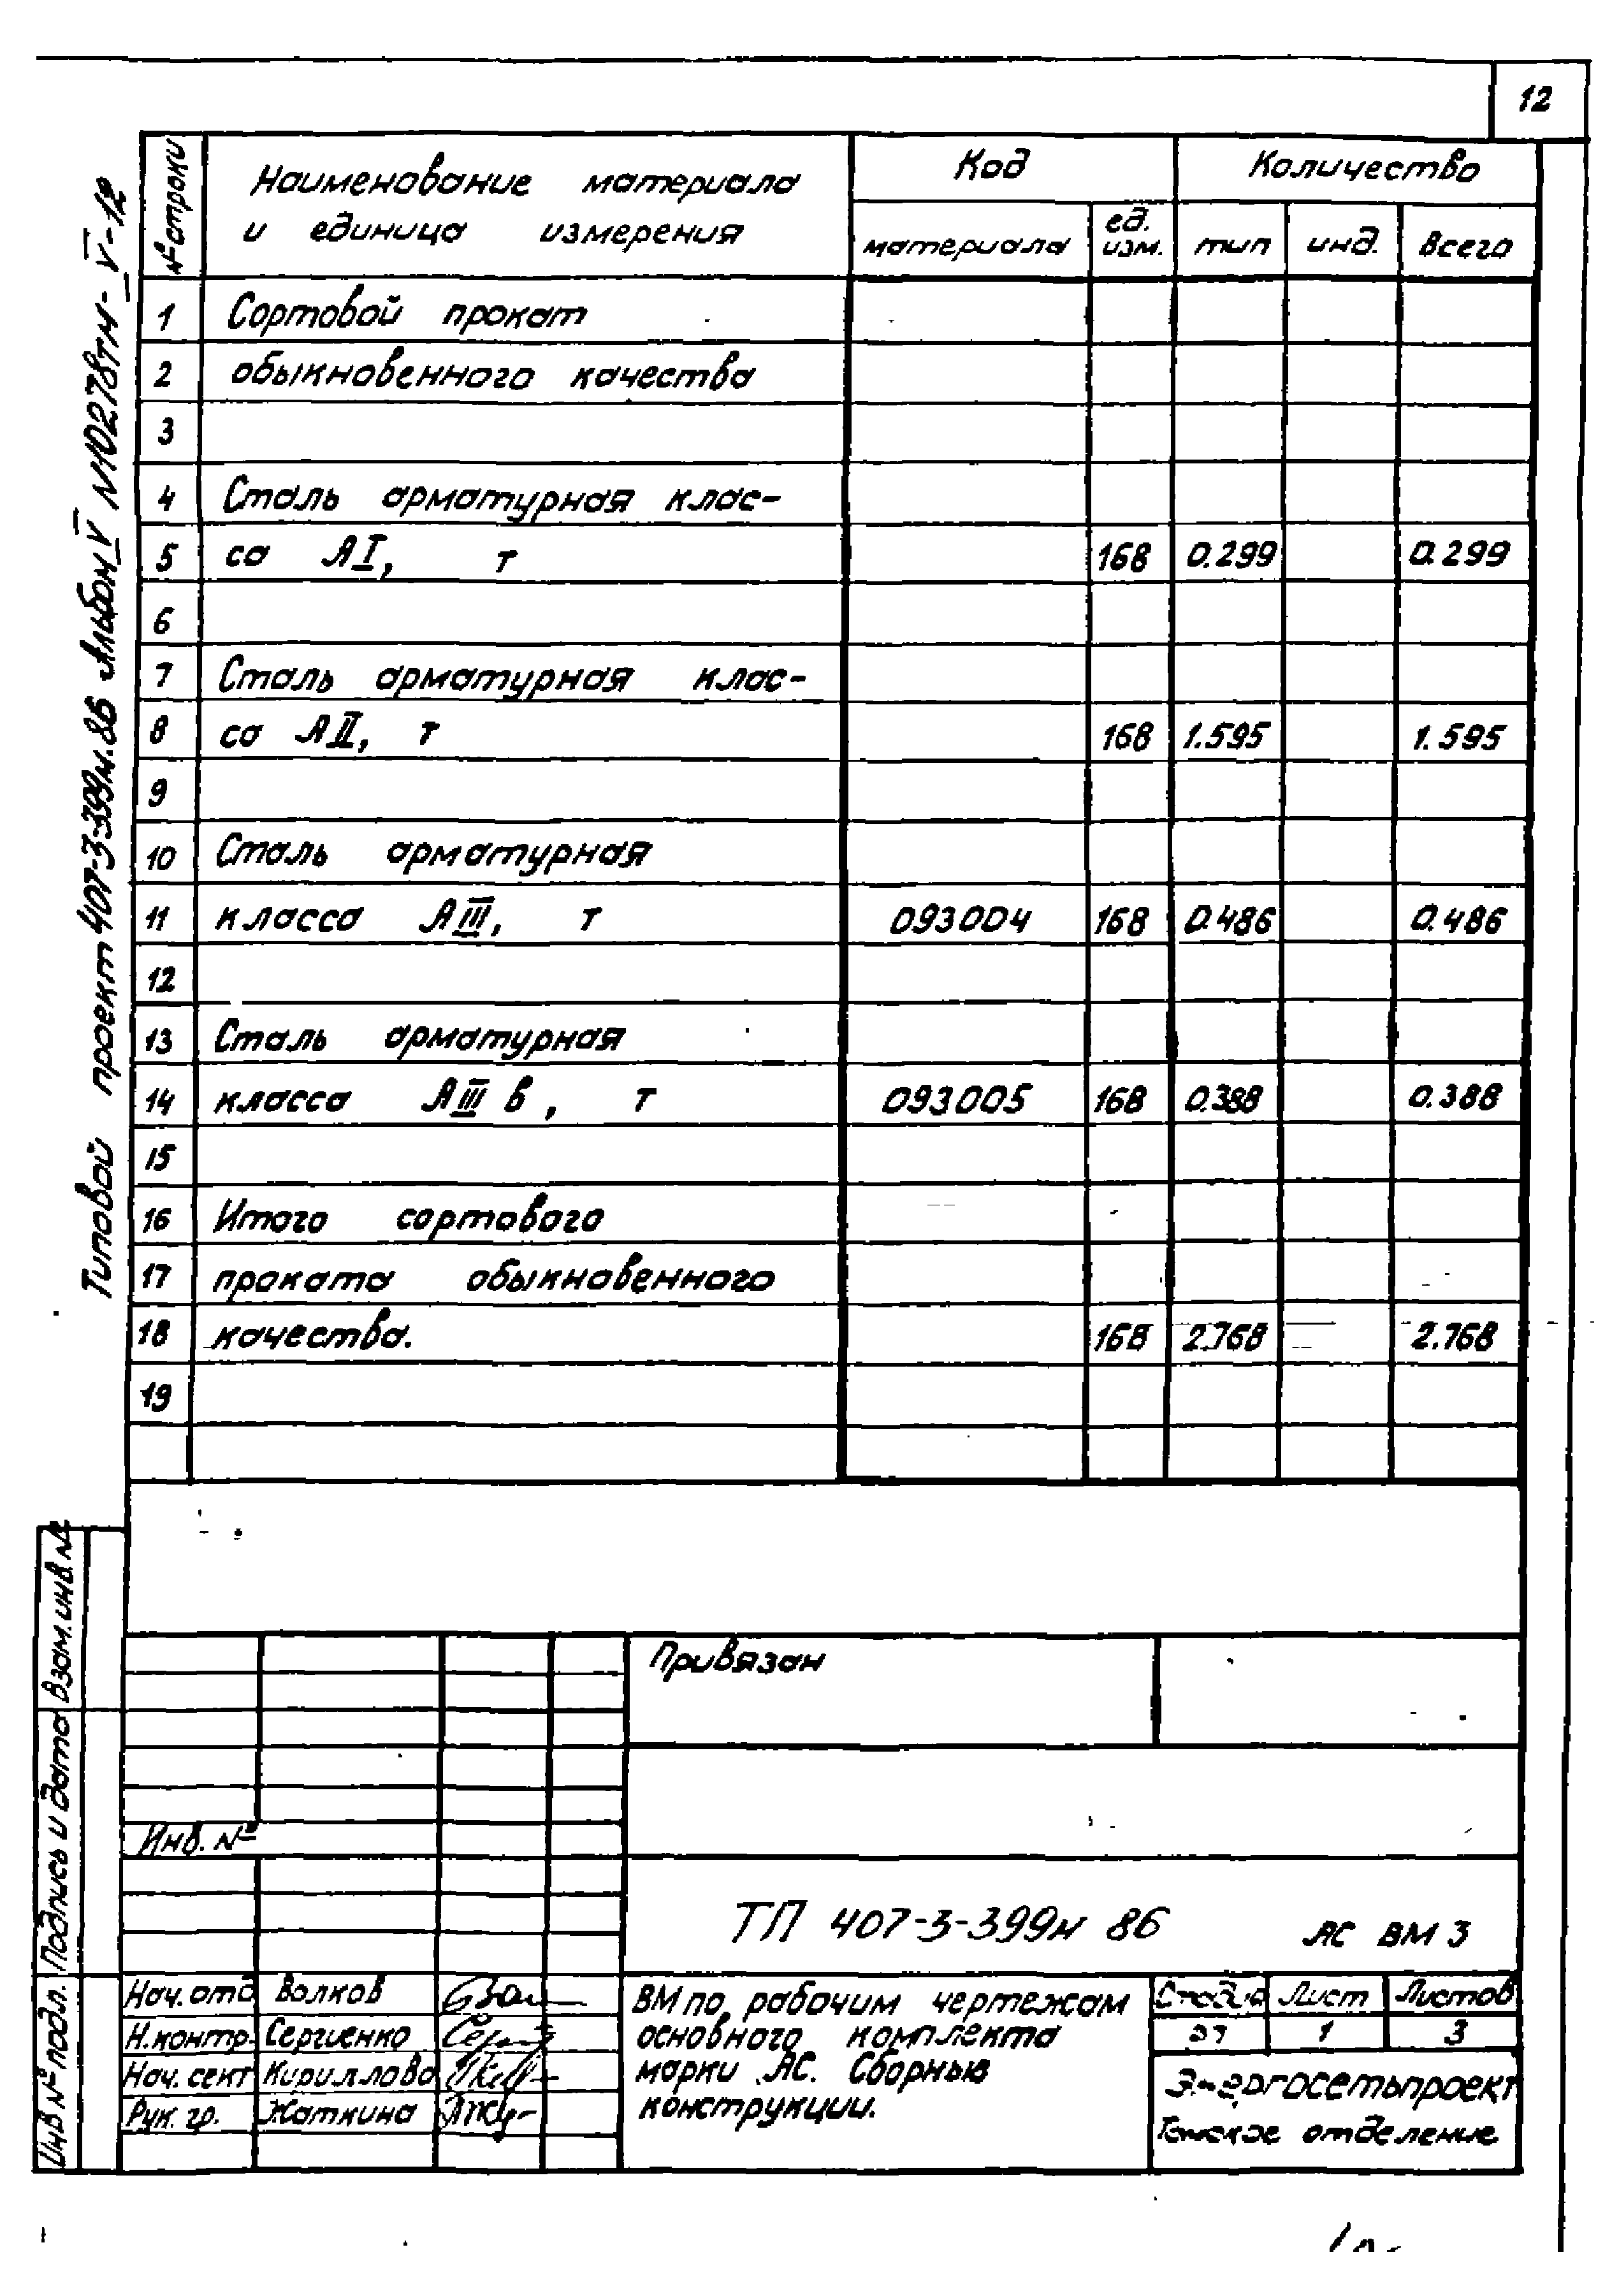 12
Типовой проект 407-3-399м.86 Альбом V N10278тм-V-12
№ строки
Наименование материала
и единица измерения
Код
Количество
материала
ед. изм.
тип
инд.
всего
1 Сортовой прокат
2 обыкновенного качества
3
4 Сталь арматурная клас-
5 са АI, т 168 0.299 0.299
6
7 Сталь арматурная клас-
8 са АII, т 168 1.595 1.595
9
10 Сталь арматурная
11 класса АIII, т 093004 168 0.486 0.486
12
13 Сталь арматурная
14 класса АIII в, т 093005 168 0.388 0.388
15
16 Итого сортового
17 проката обыкновенного
18 качества. 168 2.768 2.768
19
Взам. инв. №
Подпись и дата
Инв № подл.
Привязан
Инв. №
ТП 407-3-399м 86 АС ВМ 3
Нач. отд Волков
Н.контр. Сергиенко
Нач. сект Кириллова
Рук. гр. Жаткина
ВМ по рабочим чертежам
основного комплекта
марки АС. Сборные
конструкции.
Стадия Лист Листов
1 3
Энергосетьпроект
Томское отделение